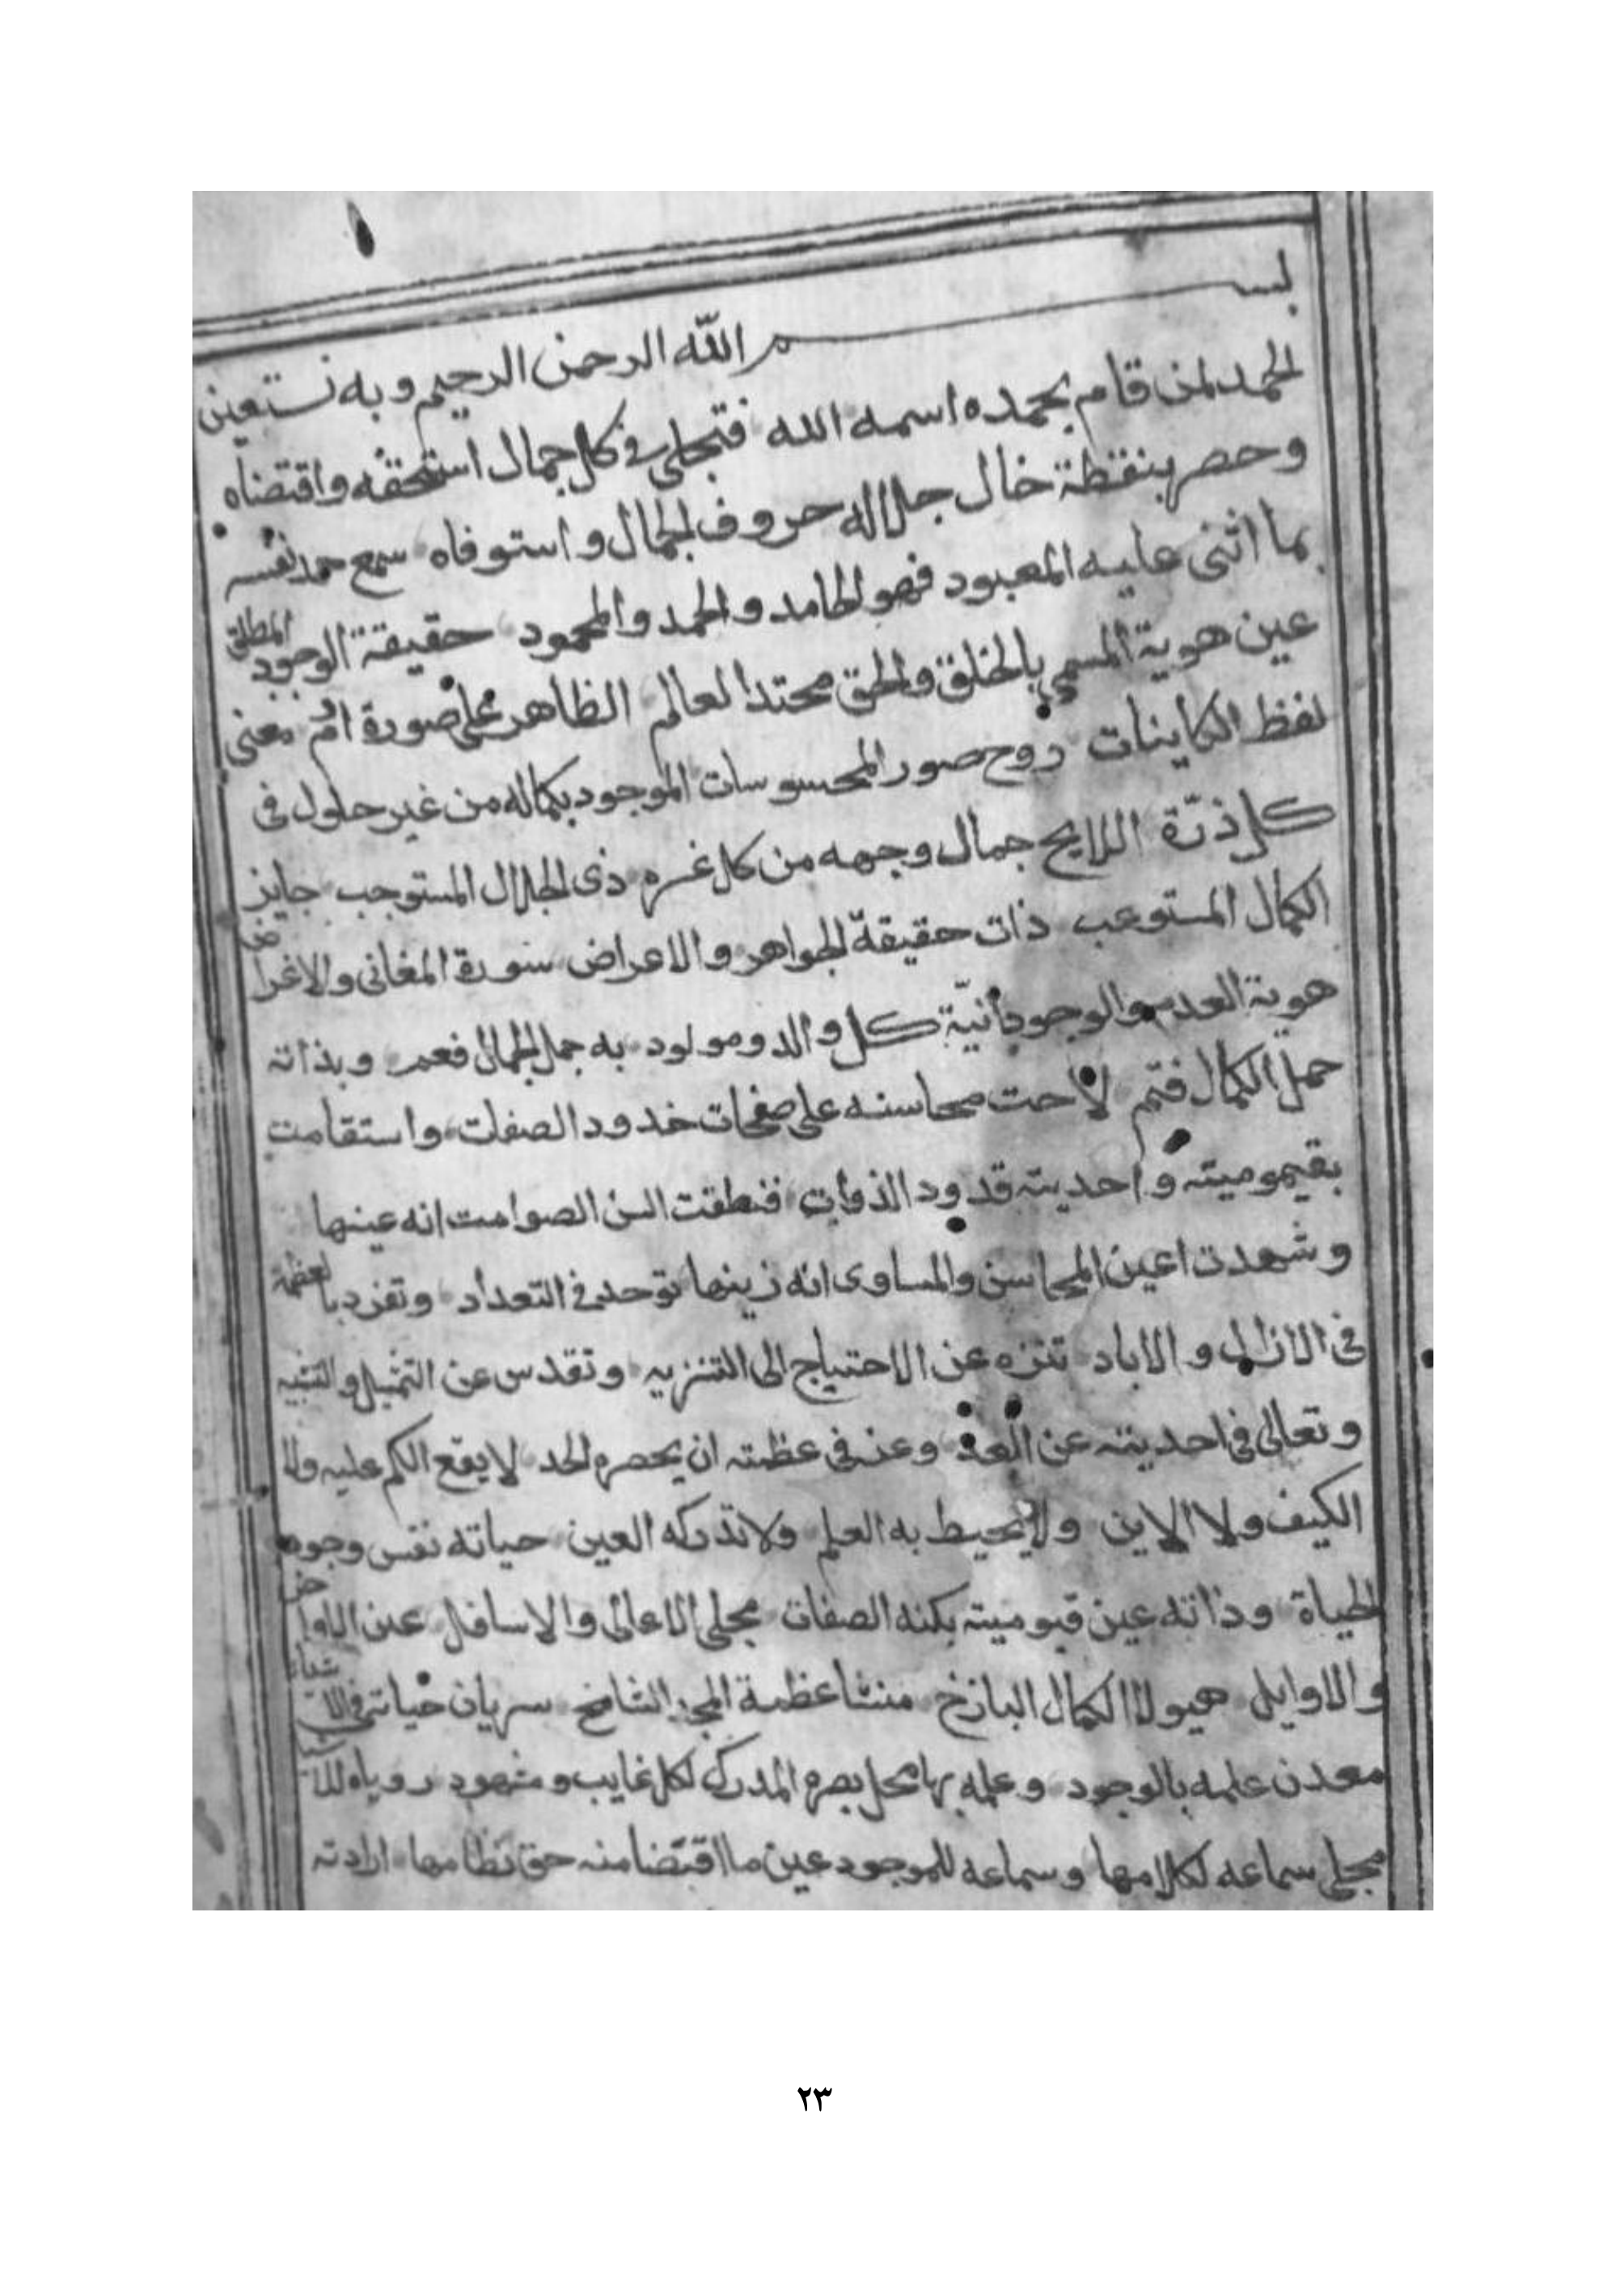 بسم الله الرحمن الرحيم وبه نستعين
الحمد لمن قام بحمده اسمه الله فتجلى فى كل جمال استحقه واقتضاه
وحصر بنقطة خال جلاله حروف الجمال واستوفاه سمع حمد نفسه
بما اثنى عليه المعبود فهو الحامد والحمد والمحمود حقيقة الوجود المطلق
عين هوية المسمى بالخلق والحق محتد العالم الظاهر على صورة ام معنى
لفظ الكاينات روح صور المحسوسات الموجود بكماله من غير حلول فى
كل ذرّة اللايح جمال وجهه من كل غره ذى الجلال المستوجب جايز
الكمال المستوعب ذات حقيقة الجواهر والاعراض سورة المغانى والاغراض
هوية العدم والوجود أنيّة كل والد ومولود به جمل الجمال فعم وبذاته
حمل الكمال فتم لاحت محاسنه على صفحات خدود الصفات واستقامت
بقيموميته واحديته قدود الذوات فنطقت السن الصوامت انه عينها
وشهدت اعين المحاسن والمساوى انه زينها توحد فى التعداد وتفرد بالعظمة
فى الازال والاباد تنزه عن الاحتياج الى التنزيه وتقدس عن التمثيل والتشبيه
وتعالى فى احديته عن العد وعز فى عظمته ان يحصره الحد لا يقع الكم عليه ولا
الكيف ولا الاين ولا يحيط به العلم ولا تدركه العين حياته نفس وجود
الحياة وذاته عين قيوميته بكنه الصفات مجلى الاعالى والاسافل عين الاواخر
والاوايل هيولا الكمال الباذخ منشا عظمة المجد الشامخ سريان حياته فى الاشياء
معدن علمه بالوجود وعلمه بها محل بصره المدرك لكل غايب ومشهود روياه للاشيا
مجلى سماعه لكلامها وسماعه للموجود عين ما اقتضا منه حق نظامها ارادته
٢٣